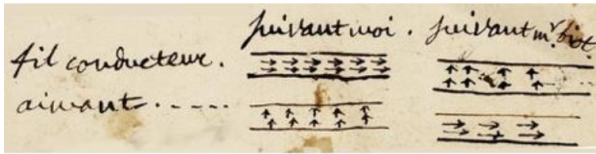 suivant moi. suivant mr. biot.
fil conducteur.
aimant.....